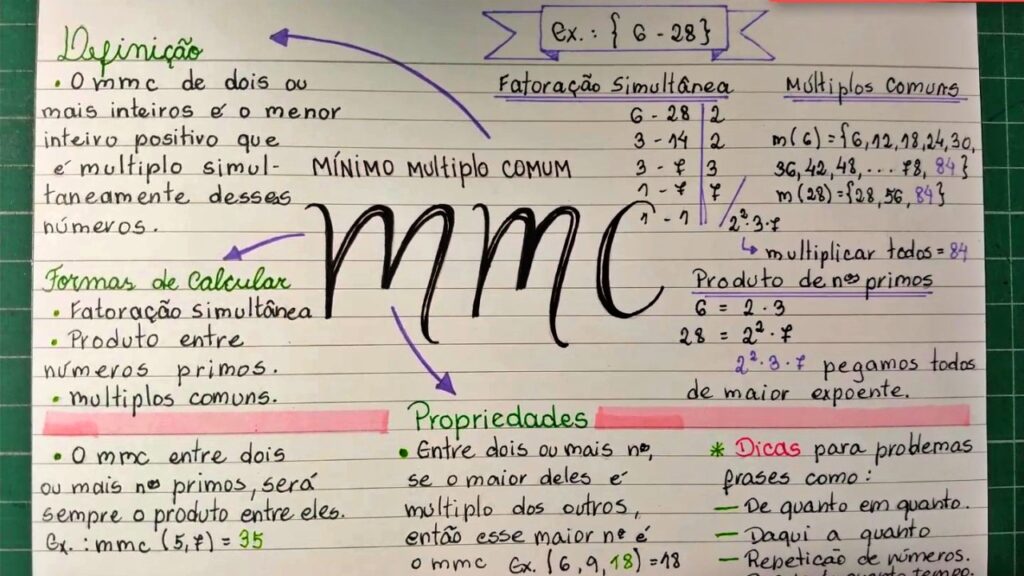 Definição
• O mmc de dois ou
mais inteiros é o menor
inteiro positivo que
é multiplo simul-
taneamente desses
números.
MÍNIMO Multiplo COMUM
mmc
Formas de Calcular
• Fatoração Simultânea
• Produto entre
números primos.
• multiplos comuns.
Ex.: { 6 - 28}
Fatoração Simultânea
6 - 28 | 2
3 - 14 | 2
3 - 7 | 3
1 - 7 | 7
1 - 1 / 2²·3·7
↳ multiplicar todos = 84
Múltiplos Comuns
m(6) = {6,12,18,24,30,
36,42,48,... 78, 84}
m(28) = {28,56,84}
Produto de nos primos
6 = 2 · 3
28 = 2² · 7
2²·3·7 pegamos todos
de maior expoente.
Propriedades
• O mmc entre dois
ou mais nos primos, será
sempre o produto entre eles.
Ex.: mmc (5,7) = 35
• Entre dois ou mais nos,
se o maior deles é
múltiplo dos outros,
então esse maior nº é
o mmc Ex. (6,9,18) = 18
* Dicas para problemas
frases como:
— De quanto em quanto.
— Daqui a quanto
— Repetição de números.
quanto tempo.